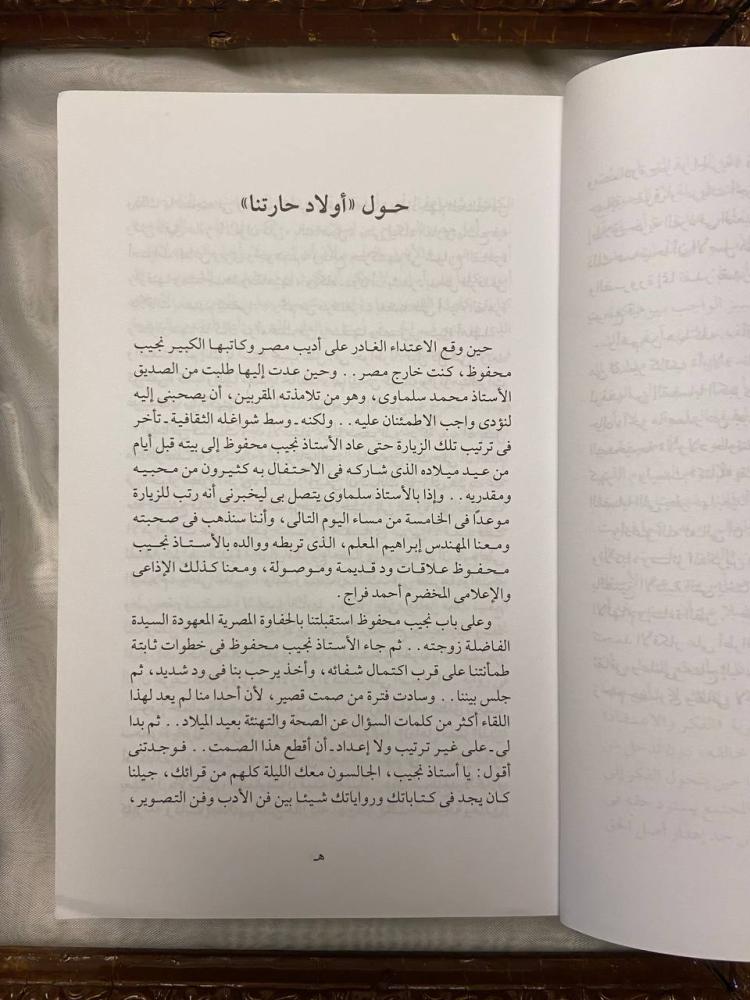 حول «أولاد حارتنا»
حين وقع الاعتداء الغادر على أديب مصر وكاتبها الكبير نجيب
محفوظ، كنت خارج مصر . . وحين عدت إليها طلبت من الصديق
الأستاذ محمد سلماوى، وهو من تلامذته المقربين، أن يصحبنى إليه
لنؤدى واجب الاطمئنان عليه . . ولكنه ـ وسط شواغله الثقافية ـ تأخر
فى ترتيب تلك الزيارة حتى عاد الأستاذ نجيب محفوظ إلى بيته قبل أيام
من عيد ميلاده الذى شاركه فى الاحتفال به كثيرون من محبيه
ومقدريه . . وإذا بالأستاذ سلماوى يتصل بى ليخبرنى أنه رتب للزيارة
موعدًا فى الخامسة من مساء اليوم التالى، وأننا سنذهب فى صحبته
ومعنا المهندس إبراهيم المعلم، الذى تربطه ووالده بالأستاذ نجيب
محفوظ علاقات ود قديمة وموصولة، ومعنا كذلك الإذاعى
والإعلامى المخضرم أحمد فراج .
وعلى باب نجيب محفوظ استقبلتنا بالحفاوة المصرية المعهودة السيدة
الفاضلة زوجته . . ثم جاء الأستاذ نجيب محفوظ فى خطوات ثابتة
طمأنتنا على قرب اكتمال شفائه، وأخذ يرحب بنا فى ود شديد، ثم
جلس بيننا . . وسادت فترة من صمت قصير، لأن أحدا منا لم يعد لهذا
اللقاء أكثر من كلمات السؤال عن الصحة والتهنئة بعيد الميلاد . . ثم بدا
لى ـ على غير ترتيب ولا إعداد ـ أن أقطع هذا الصمت . . فوجدتنى
أقول : يا أستاذ نجيب، الجالسون معك الليلة كلهم من قرائك، جيلنا
كان يجد فى كتاباتك ورواياتك شيئا بين فن الأدب وفن التصوير،
هـ